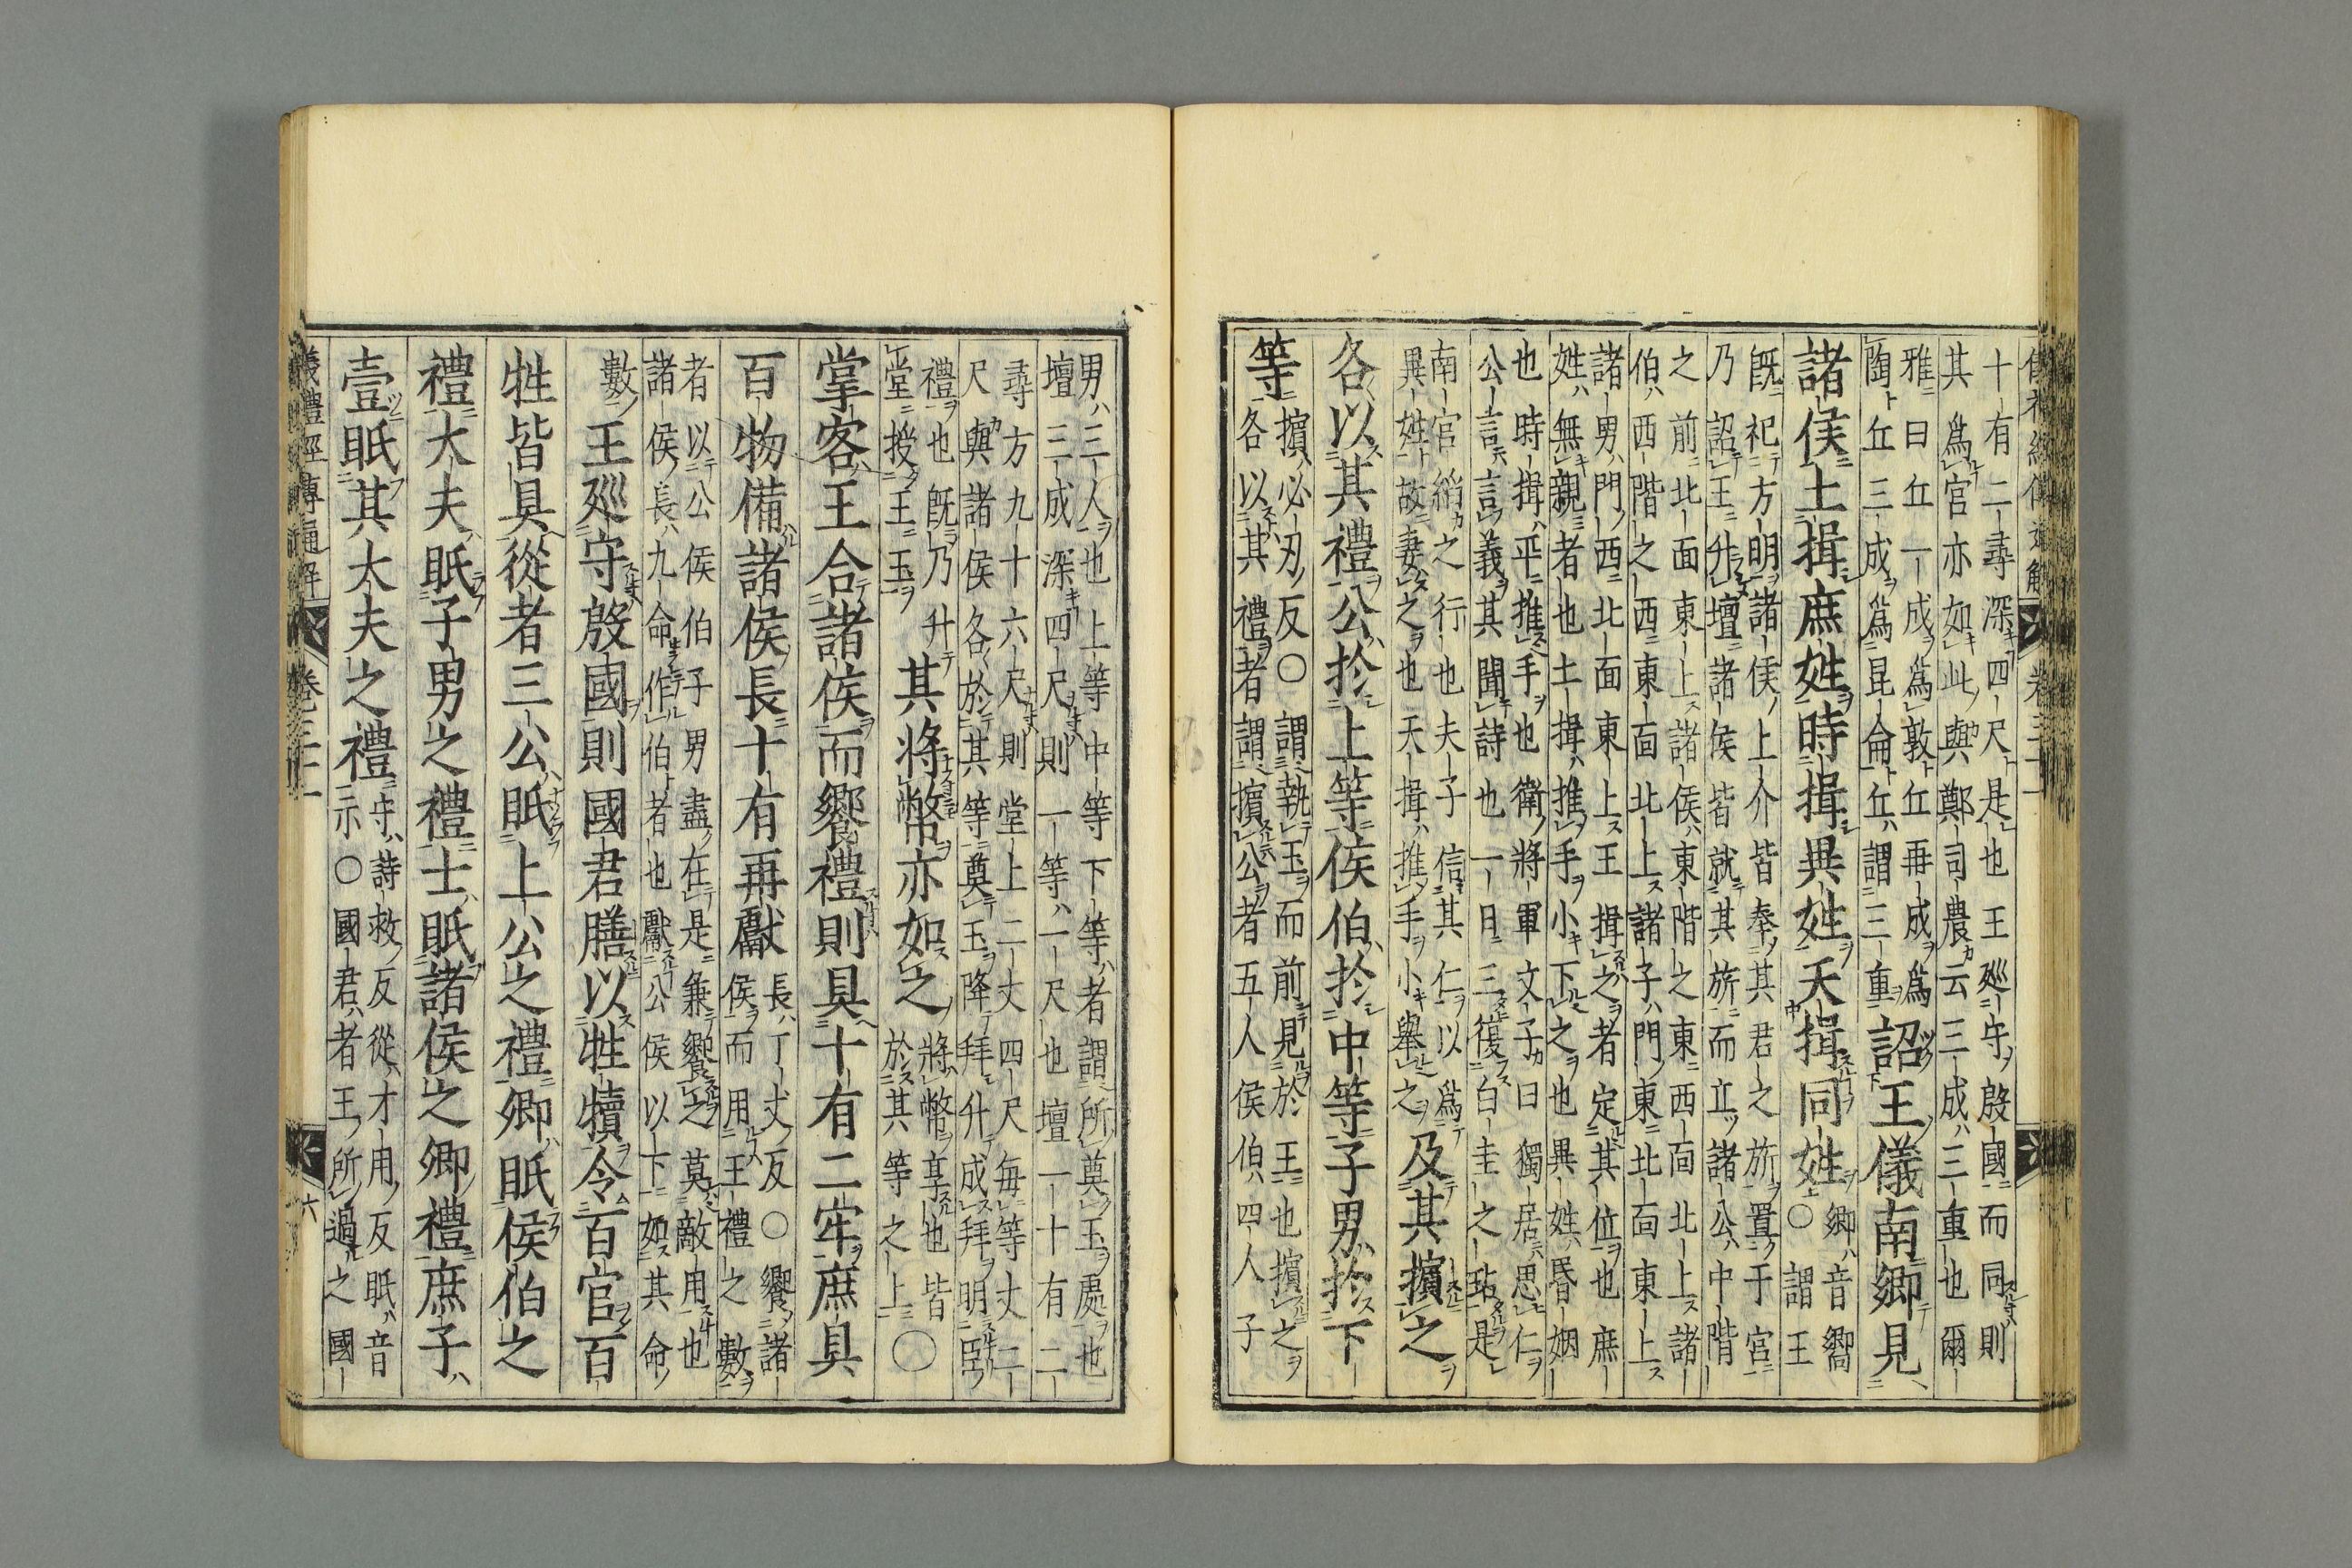 儀禮經傳通解 卷三十二
十有二尋深四尺是也王廵守殷國而同則
其爲宫亦如此與鄭司農云三成三重也爾
雅曰丘一成爲敦丘再成爲
陶丘三成爲昆侖丘謂三重
詔王儀南鄉見
諸侯土揖庶姓時揖異姓天揖同姓
鄉音嚮
○謂王
旣祀方明諸侯上介皆奉其君之旂置于宫
乃詔王升壇諸侯皆就其旂而立諸公中階
之前北面東上諸侯東階之東西面北上諸
伯西階之西東面北上諸子門東北面東上
諸男門西北面東上王揖之者定其位也庶
姓無親者也土揖推手小下之也異姓昏姻
也時揖平推手也衛將軍文子曰獨居思仁
公言言義其聞詩也一日三復白圭之玷是
南宫縚之行也夫子信其仁以爲
異姓故妻之也天揖推手小舉之
及其擯之
各以其禮公於上等侯伯於中等子男於下
等
擯必刃反○謂執玉而前見於王也擯之
各以其禮者謂擯公者五人侯伯四人子
男三人也上等中等下等者謂所奠玉處也
壇三成深四尺則一等一尺也壇十有二
尋方九十六尺則堂上二丈四尺每等丈二
尺與諸侯各於其等奠玉降拜升成拜明臣
禮也旣乃升
堂授王玉
其將幣亦如之
將幣享也皆
於其等之上
○
掌客王合諸侯而饗禮則具十有二牢庶具
百物備諸侯長十有再獻
長丁丈反○饗諸
侯而用王禮之數
者以公侯伯子男盡在是兼饗之莫敵用也
諸侯長九命作伯者也獻公侯以下如其命
數
王廵守殷國則國君膳以牲犢令百官百
牲皆具從者三公眂上公之禮卿眂侯伯之
禮大夫眂子男之禮士眂諸侯之卿禮庶子
壹眂其大夫之禮
守詩救反從才用反眂音
示○國君者王所過之國
儀禮經傳通解 卷三十二 六